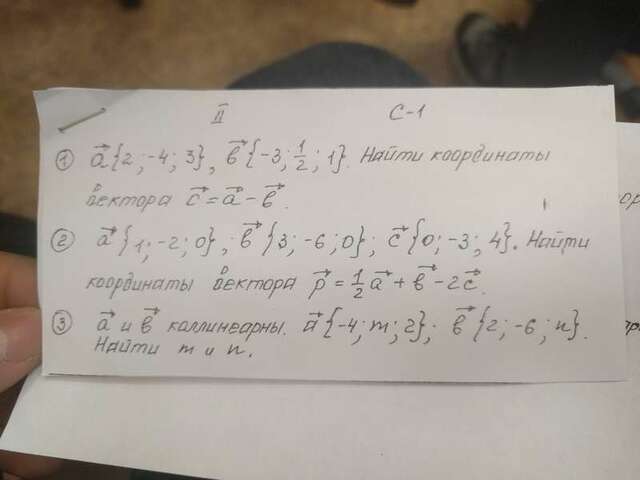 II C-1
① a⃗ {2; -4; 3}, b⃗ {-3; 1/2; 1}. Найти координаты
вектора c⃗ = a⃗ - b⃗.
② a⃗ {1; -2; 0}, b⃗ {3; -6; 0}; c⃗ {0; -3; 4}. Найти
координаты вектора p⃗ = 1/2 a⃗ + b⃗ - 2c⃗.
③ a⃗ и b⃗ коллинеарны. a⃗ {-4; m; 2}; b⃗ {2; -6; n}.
Найти m и n.